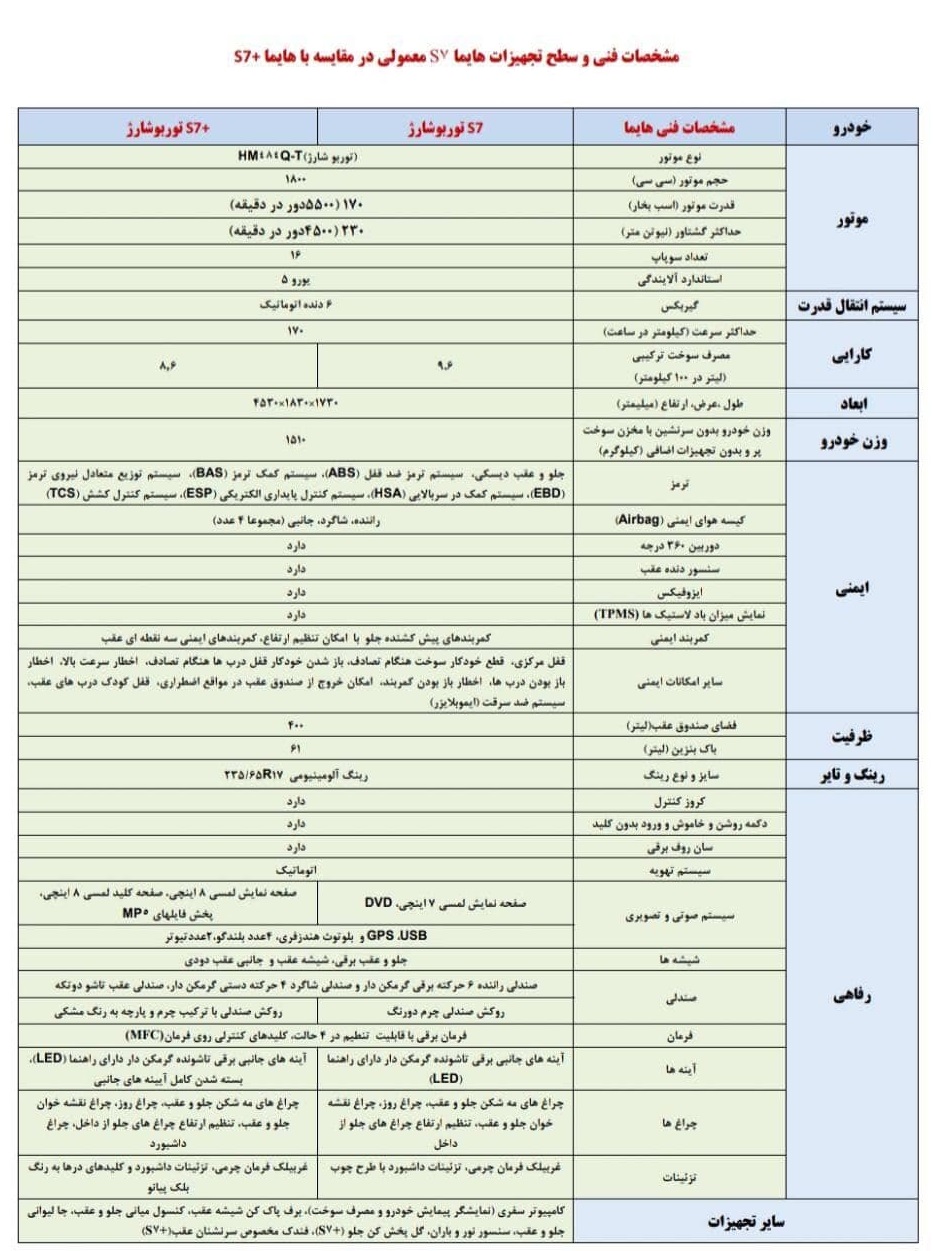 مشخصات فنی و سطح تجهیزات هایما S۷ معمولی در مقایسه با هایما S7+
خودرو
مشخصات فنی هایما
S7 توربوشارژ
S7+ توربوشارژ
موتور
نوع موتور
HM٤٨٤Q-T(توربو شارژ)
حجم موتور (سی سی)
۱۸۰۰
قدرت موتور (اسب بخار)
۱۷۰ (۵۵۰۰دور در دقیقه)
حداکثر گشتاور (نیوتن متر)
۲۳۰ (۴۵۰۰دور در دقیقه)
تعداد سوپاپ
۱۶
استاندارد آلایندگی
یورو ۵
سیستم انتقال قدرت
گیربکس
۶ دنده اتوماتیک
کارایی
حداکثر سرعت (کیلومتر در ساعت)
۱۷۰
مصرف سوخت ترکیبی
(لیتر در ۱۰۰ کیلومتر)
۹٫۶
۸٫۶
ابعاد
طول ،عرض، ارتفاع (میلیمتر)
۴۵۳۰×۱۸۳۰×۱۷۳۰
وزن خودرو
وزن خودرو بدون سرنشین با مخزن سوخت
پر و بدون تجهیزات اضافی (کیلوگرم)
۱۵۱۰
ایمنی
ترمز
جلو و عقب دیسکی، سیستم ترمز ضد قفل (ABS)، سیستم کمک ترمز (BAS)، سیستم توزیع متعادل نیروی ترمز
(EBD)، سیستم کمک در سربالایی (HSA)، سیستم کنترل پایداری الکتریکی (ESP)، سیستم کنترل کشش (TCS)
کیسه هوای ایمنی (Airbag)
راننده، شاگرد، جانبی (مجموعا ۴ عدد)
دوربین ۳۶۰ درجه
دارد
سنسور دنده عقب
دارد
ایزوفیکس
دارد
نمایش میزان باد لاستیک ها (TPMS)
دارد
کمربند ایمنی
کمربندهای پیش کشنده جلو با امکان تنظیم ارتفاع، کمربندهای ایمنی سه نقطه ای عقب
سایر امکانات ایمنی
قفل مرکزی، قطع خودکار سوخت هنگام تصادف، باز شدن خودکار قفل درب ها هنگام تصادف، اخطار سرعت بالا، اخطار
باز بودن درب ها، اخطار باز بودن کمربند، امکان خروج از صندوق عقب در مواقع اضطراری، قفل کودک درب های عقب،
سیستم ضد سرقت (ایموبلایزر)
ظرفیت
فضای صندوق عقب(لیتر)
۴۰۰
باک بنزین (لیتر)
۶۱
رینگ و تایر
سایز و نوع رینگ
رینگ آلومینیومی ۲۳۵/۶۵R۱۷
رفاهی
کروز کنترل
دارد
دکمه روشن و خاموش و ورود بدون کلید
دارد
سان روف برقی
دارد
سیستم تهویه
اتوماتیک
سیستم صوتی و تصویری
صفحه نمایش لمسی ۷ اینچی، DVD
صفحه نمایش لمسی ۸ اینچی، صفحه کلید لمسی ۸ اینچی،
پخش فایلهای MP۵
GPS ،USB و بلوتوث هندزفری، ۴عدد بلندگو،۲عددتیوتر
شیشه ها
جلو و عقب برقی، شیشه عقب و جانبی عقب دودی
صندلی
صندلی راننده ۶ حرکته برقی گرمکن دار و صندلی شاگرد ۴ حرکته دستی گرمکن دار، صندلی عقب تاشو دوتکه
روکش صندلی چرم دورنگ
روکش صندلی با ترکیب چرم و پارچه به رنگ مشکی
فرمان
فرمان برقی با قابلیت تنظیم در ۴ حالت، کلیدهای کنترلی روی فرمان(MFC)
آینه ها
آینه های جانبی برقی تاشونده گرمکن دار دارای راهنما
(LED)
آینه های جانبی برقی تاشونده گرمکن دار دارای راهنما (LED)،
بسته شدن کامل آیینه های جانبی
چراغ ها
چراغ های مه شکن جلو و عقب، چراغ روز، چراغ نقشه
خوان جلو و عقب، تنظیم ارتفاع چراغ های جلو از
داخل
چراغ های مه شکن جلو و عقب، چراغ روز، چراغ نقشه خوان
جلو و عقب، تنظیم ارتفاع چراغ های جلو از داخل، چراغ
داشبورد
تزئینات
غربیلک فرمان چرمی، تزئینات داشبورد با طرح چوب
غربیلک فرمان چرمی، تزئینات داشبورد و کلیدهای درها به رنگ
بلک پیانو
سایر تجهیزات
کامپیوتر سفری (نمایشگر پیمایش خودرو و مصرف سوخت)، برف پاک کن شیشه عقب، کنسول میانی جلو و عقب، جا لیوانی
جلو و عقب، سنسور نور و باران، گل پخش کن جلو (S۷+)، فندک مخصوص سرنشنان عقب(S۷+)